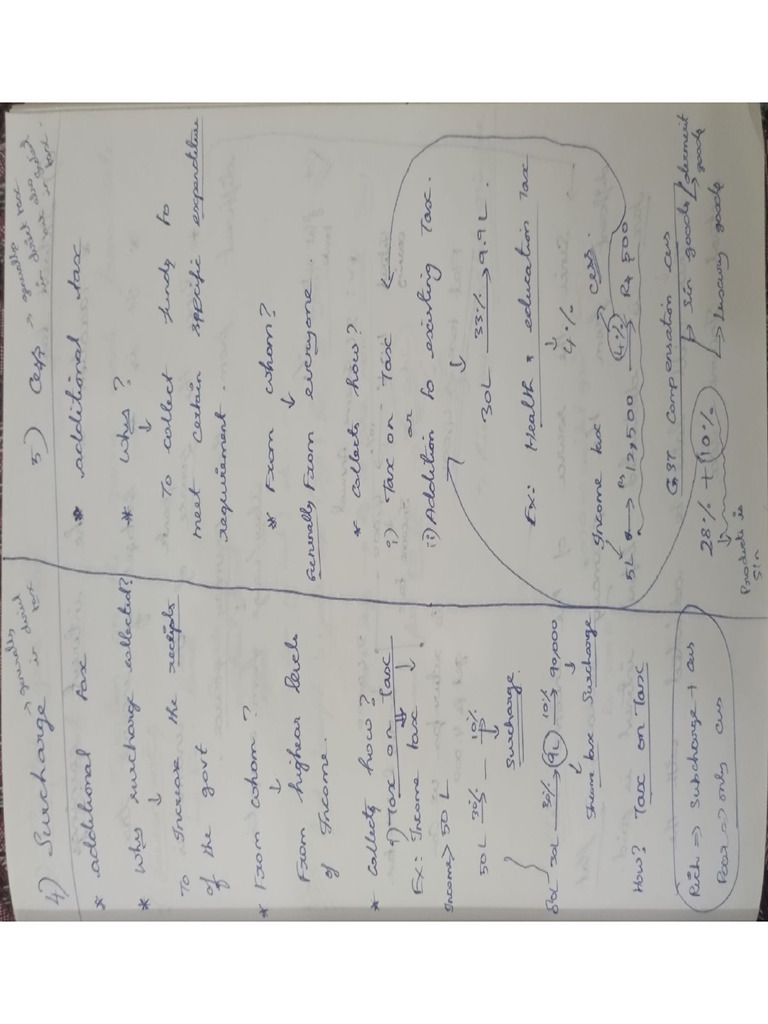 4) Surcharge → generally in direct tax
* additional tax
* Why surcharge collected?
↓
To Increase the receipts
of the govt
* From whom?
↓
From higher levels
of Income.
* Collects how?
i) Tax on Tax
Ex: Income tax
Income > 50 L
50L 30% 10%
Surcharge
30L 30% → 9L 10% → 90,000
Income tax Surcharge
How? Tax on Tax
Rich ⇒ Subcharge + cess
Poor ⇒ only cess
5) Cess → generally in direct tax
* additional tax
* Why?
↓
To collect funds to
meet certain specific expenditure
requirement.
* From whom?
↓
Generally From everyone.
* Collects how?
i) Tax on Tax
or
ii) Addition to existing Tax.
↓
30L 33% → 9.9L.
Ex: Health & education Tax
↓
4%
Income tax → cess.
5L → 12,500 4% → Rs 500
GST Compensation cess
28% + 10% → Sin goods/demerit goods
→ luxury goods
Products in
Sin